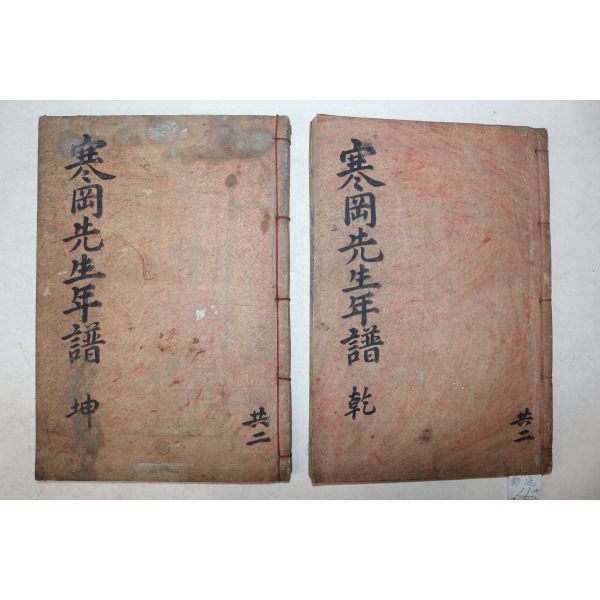 寒岡先生年譜 坤
共二
寒岡先生年譜 乾
共二